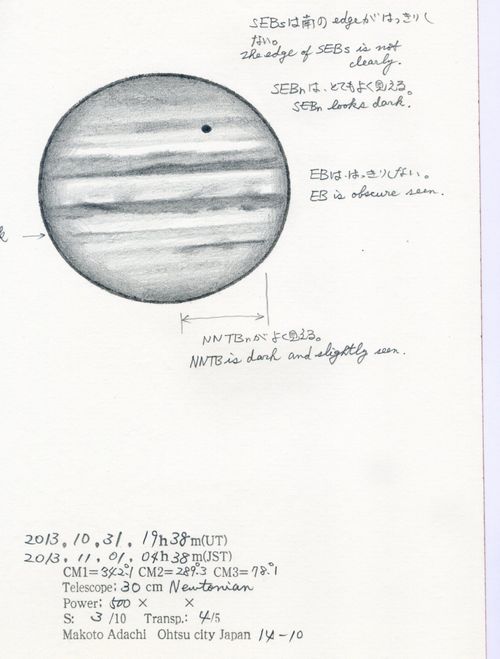 SEBsは南の edgeがはっきりし
ない。
The edge of SEBs is not
clearly.
SEBnは、とてもよく見える。
SEBn looks dark.
EBは、はっきりしない。
EB is obscure seen.
NNTBnがよく見える。
NNTB is dark and slightly seen.
2013. 10. 31. 19h38m(UT)
2013. 11. 01. 04h38m(JST)
CM1=342.°1 CM2=289.°3 CM3=78.°1
Telescope; 30 cm Newtonian
Power; 500 × ×
S: 3 /10 Transp.: 4/5
Makoto Adachi Ohtsu city Japan 14-10